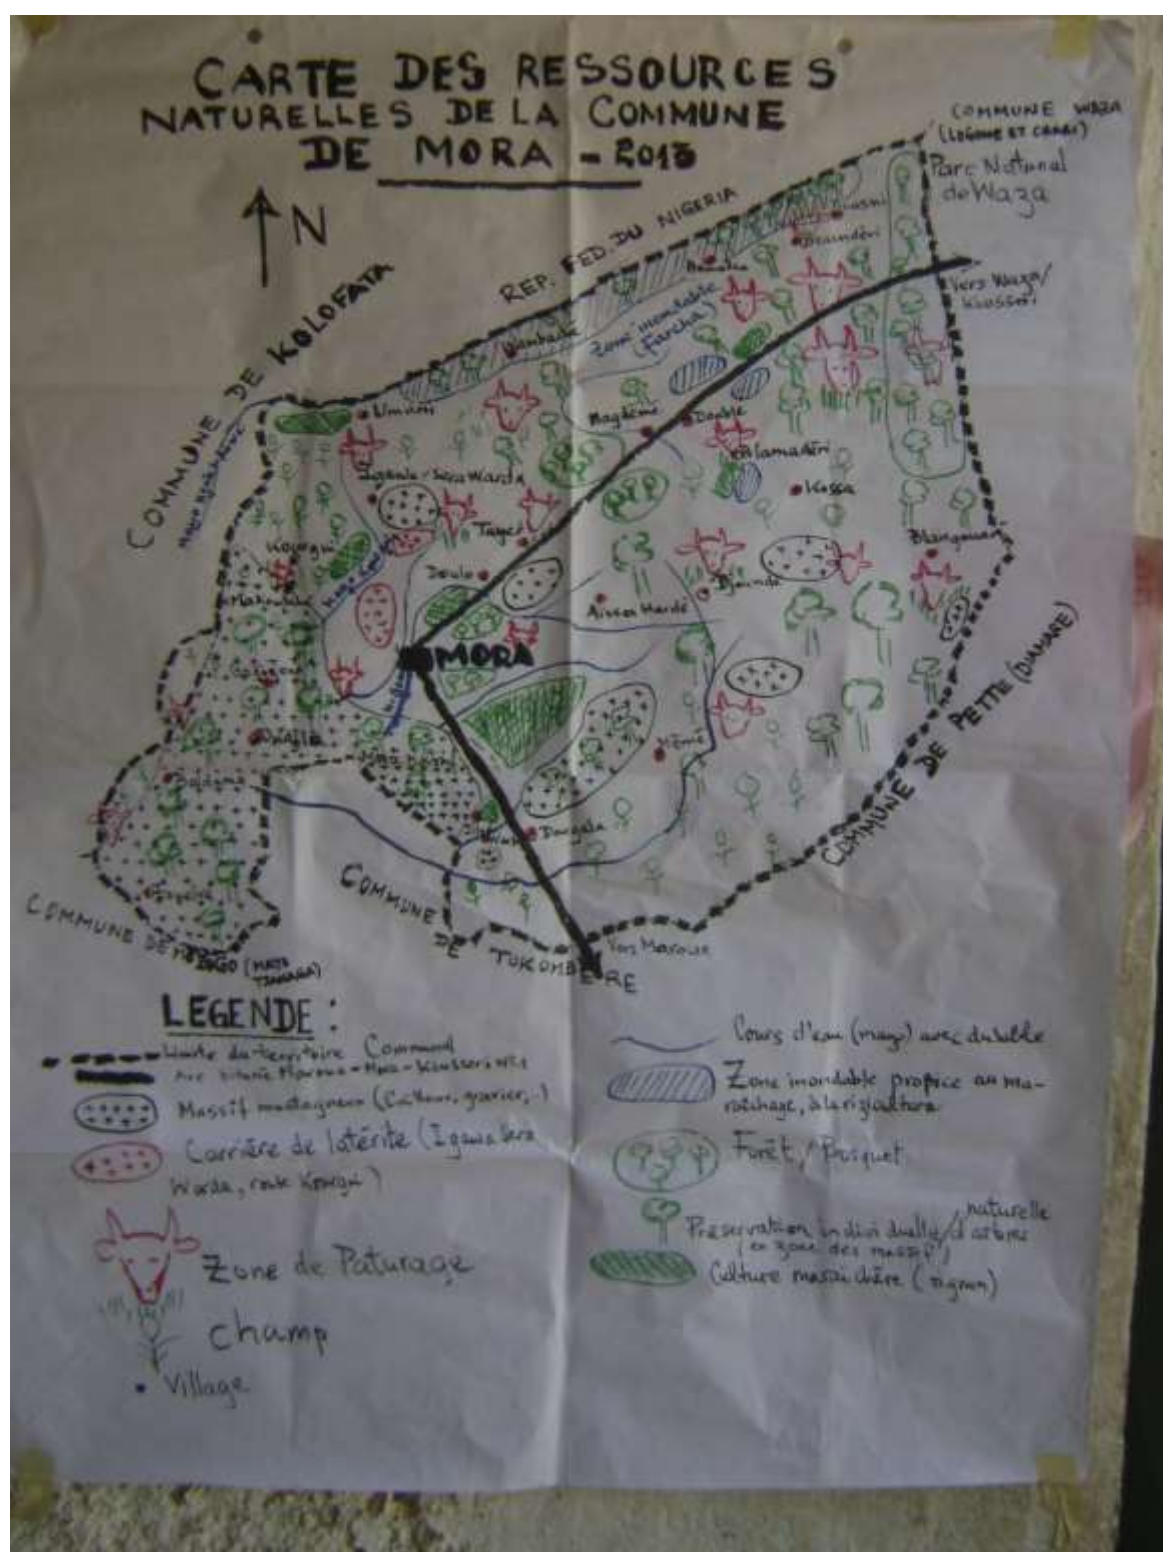 CARTE DES RESSOURCES
NATURELLES DE LA COMMUNE
DE MORA - 2013
COMMUNE WAZA
(LOGONE ET CHARI)
Parc National
de Waza
N
REP. FED. DU NIGERIA
COMMUNE DE KOLOFATA
Vers Waza/
Kousseri
Zone inondable
(Farcha)
Limani
Magdeme
Double
Alamadéri
Kossa
Igawa/Sera Warda
Tayer
Kourgui
Blangoua
Doulo
Aissa Hardé
Djounde
MORA
Mémé
Dougala
COMMUNE DE PETTE (DIAMARE)
COMMUNE
DE TOKOMBERE
Vers Maroua
COMMUNE DE
(MAYO
TSANAGA)
LEGENDE :
Limite du territoire Communal
Axe bitumé Maroua - Mora - Kousseri
Massif montagneux (Cailloux, gravier, ..)
Carrière de latérite (Igawa Sera
Warda, route Kourgui)
Zone de Paturage
champ
Village
Cours d'eau (mayo) avec du sable
Zone inondable propice au ma-
raîchage, à la rizculture
Forêt / Bosquet
Préservation individuelle / naturelle d'arbres
(en zone des massif)
Culture maraîchère (oignon)